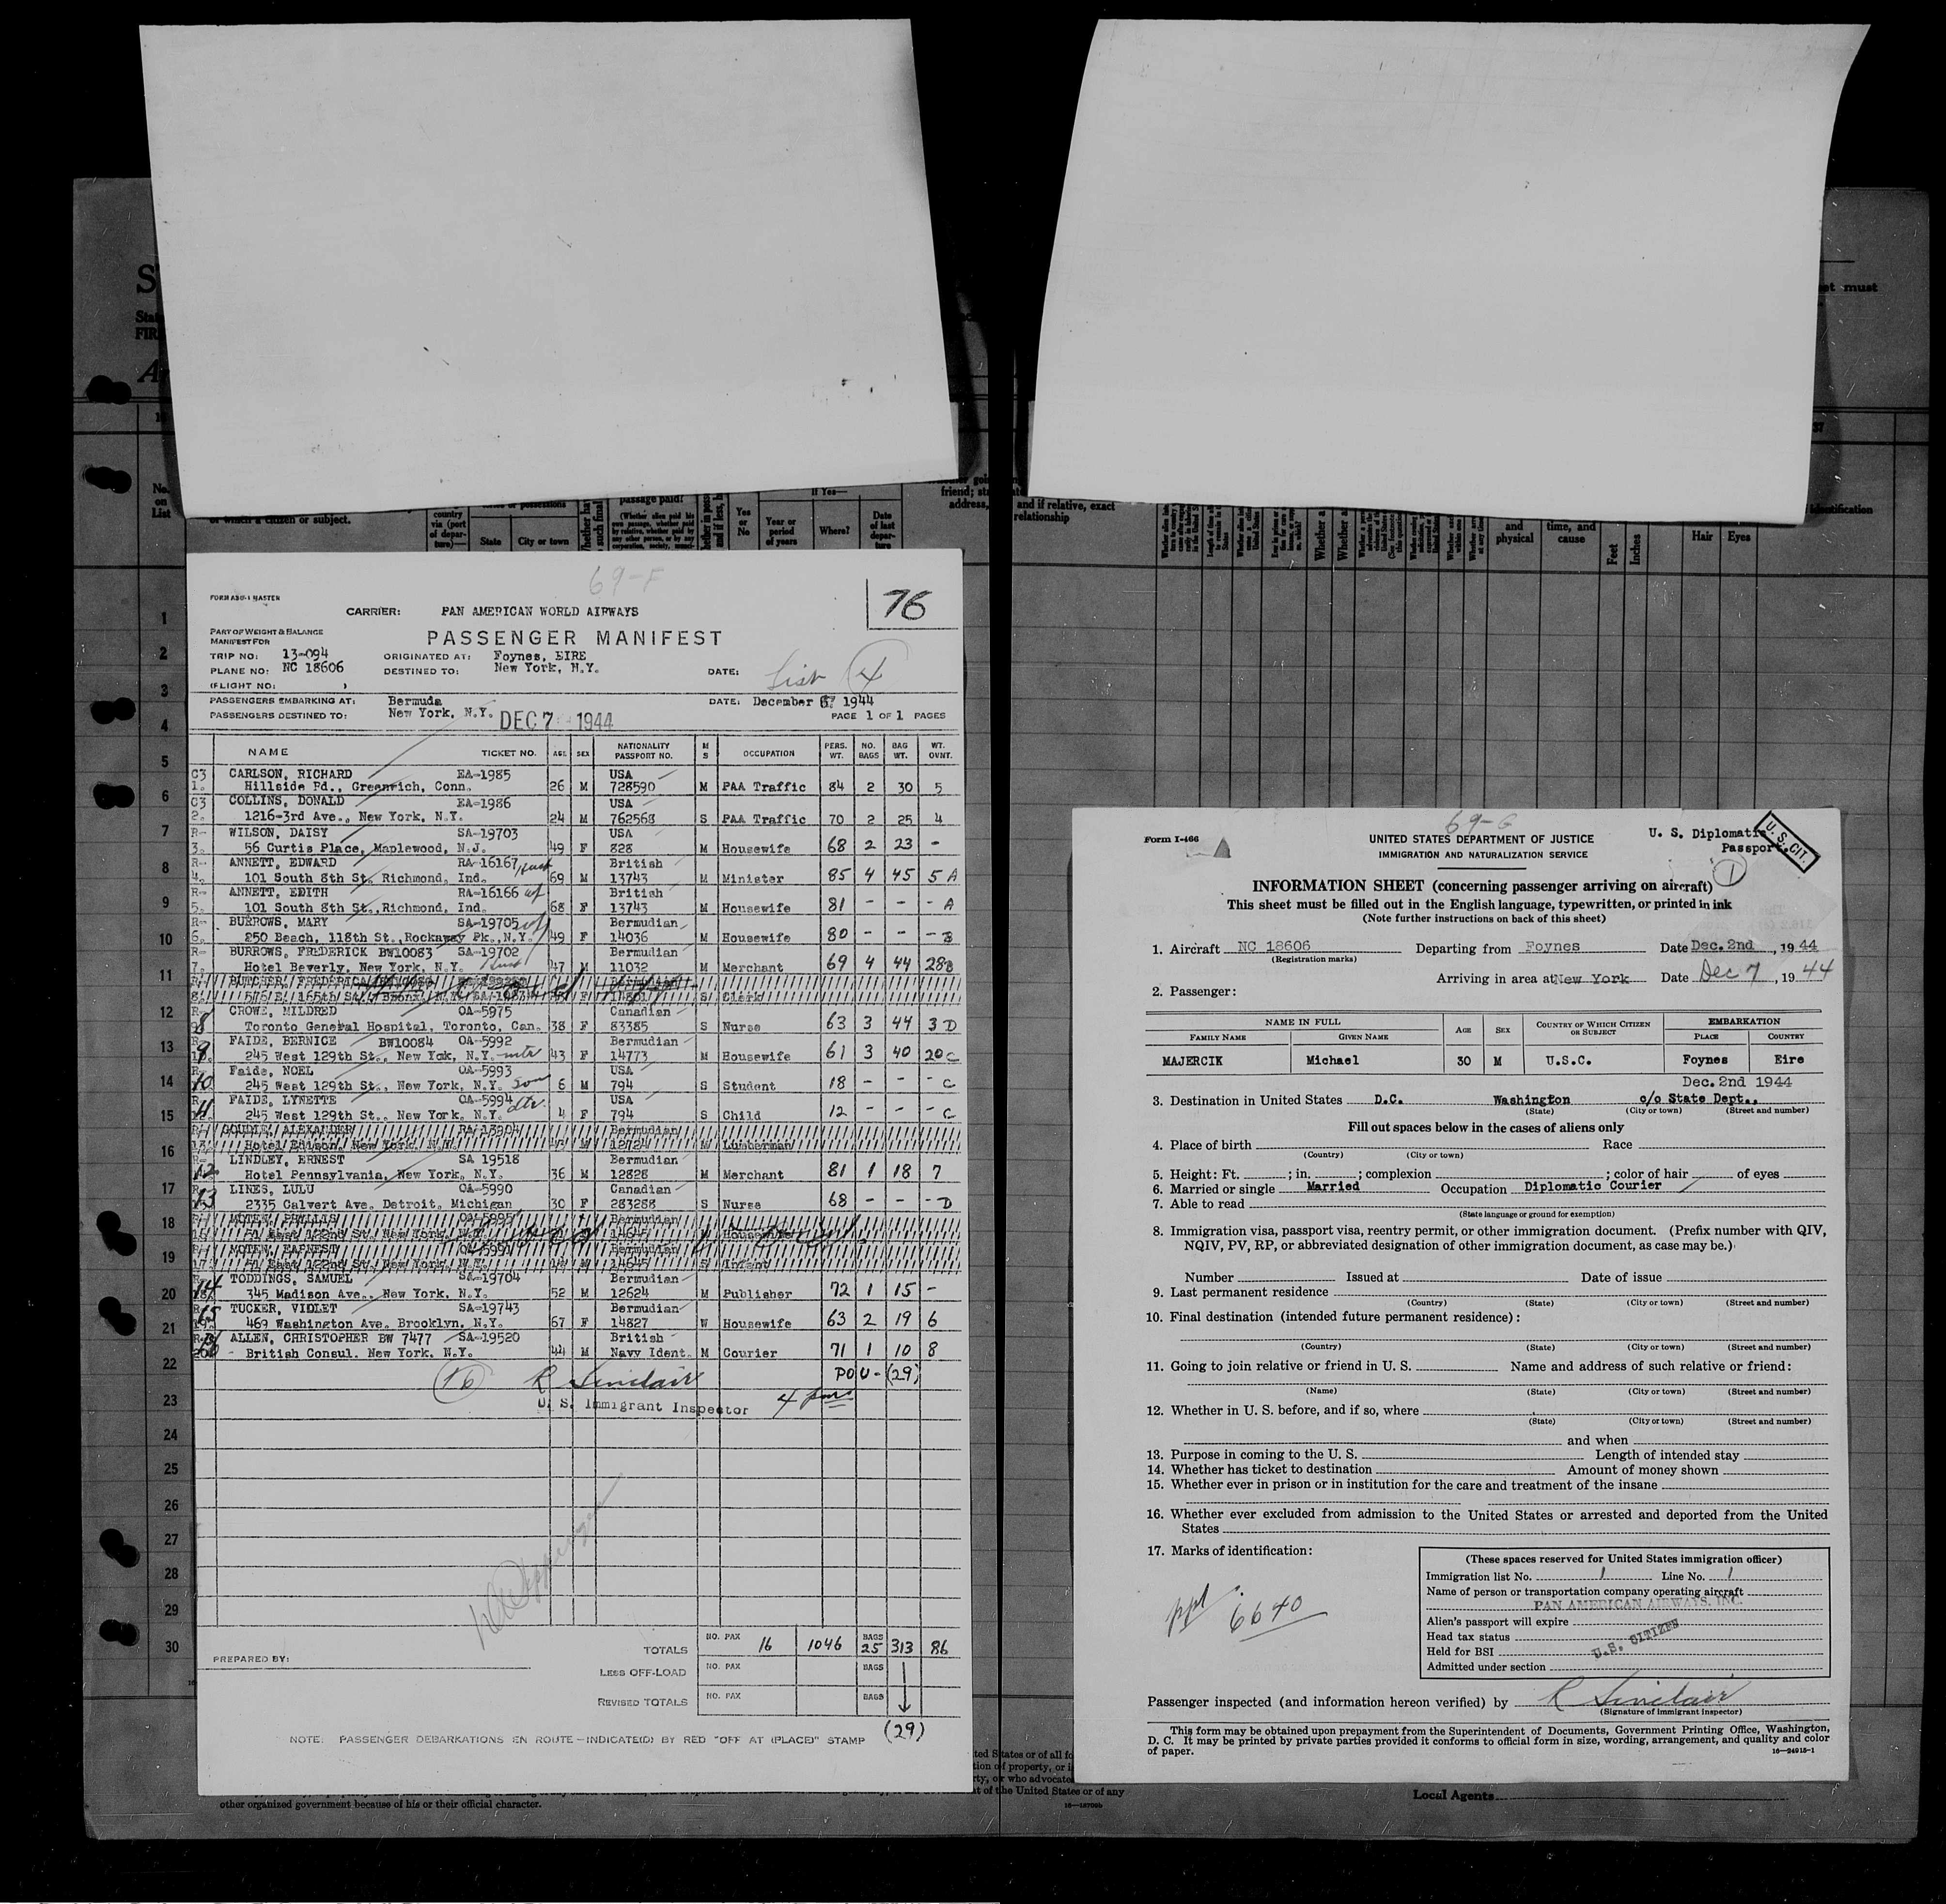 69-F
FORM A36-1 MASTER
76
CARRIER: PAN AMERICAN WORLD AIRWAYS
PASSENGER MANIFEST
PART OF WEIGHT & BALANCE
MANIFEST FOR
TRIP NO: 13-094 ORIGINATED AT: Foynes, EIRE
PLANE NO: NC 18606 DESTINED TO: New York, N.Y. DATE:
(FLIGHT NO: )
PASSENGERS EMBARKING AT: Bermuda DATE: December 1944
PASSENGERS DESTINED TO: New York, N.Y. DEC 7 1944 PAGE 1 OF 1 PAGES
NAME TICKET NO. AGE SEX NATIONALITY PASSPORT NO. M S OCCUPATION PERS. WT. NO. BAGS BAG WT. WT. OVNT.
C3 CARLSON, RICHARD EA-1985 USA
1. Hillside Rd., Greenwich, Conn. 26 M 728590 M PAA Traffic 84 2 30 5
C3 COLLINS, DONALD EA-1986 USA
2. 1216-3rd Ave., New York, N.Y. 24 M 762568 S PAA Traffic 70 2 25 4
R- WILSON, DAISY SA-19703 USA
3. 56 Curtis Place, Maplewood, N.J. 49 F 828 M Housewife 68 2 23 -
R- ANNETT, EDWARD RA-16167 British
4. 101 South 8th St. Richmond, Ind. 69 M 13743 M Minister 85 4 45 5 A
R- ANNETT, EDITH RA-16166 wf British
5. 101 South 8th St., Richmond, Ind. 68 F 13743 M Housewife 81 - - - A
R- BURROWS, MARY SA-19705 wf Bermudian
6. 250 Beach, 118th St., Rockaway Pk., N.Y. 49 F 14036 M Housewife 80 - - - B
R- BURROWS, FREDERICK BW10083 SA-19702 Bermudian
7. Hotel Beverly, New York, N.Y. 47 M 11032 M Merchant 69 4 44 28 B
BUTCHER, FREDERICA
8. 576 E. 165th St., Bronx, N.Y. F S Clerk
R- CROWE, MILDRED OA-5975 Canadian
8 Toronto General Hospital, Toronto, Can. 38 F 83385 S Nurse 63 3 44 3 D
R- FAIDE, BERNICE BW10084 OA-5992 Bermudian
9 245 West 129th St., New York, N.Y. mtr 43 F 14773 M Housewife 61 3 40 20 C
R- Faide, NOEL OA-5993 USA
10 245 West 129th St., New York, N.Y. son 6 M 794 S Student 18 - - - C
R- FAIDE, LYNETTE OA-5994 USA
11 245 West 129th St., New York, N.Y. dtr. 4 F 794 S Child 12 - - - C
GOUDIE, ALEXANDER RA-13904 Bermudian
Hotel Edison, New York, N.Y. M 12724 M Lumberman
R- LINDLEY, ERNEST SA 19518 Bermudian
12 Hotel Pennsylvania, New York, N.Y. 36 M 12828 M Merchant 81 1 18 7
R- LINES, LULU OA-5990 Canadian
13 2335 Calvert Ave. Detroit, Michigan 30 F 283288 S Nurse 68 - - - D
MOTEN, PHYLLIS OA-5995 Bermudian
51 East 122nd St., New York, N.Y. 14645 M Housewife
MOTEN, EARNEST OA-5991 Bermudian
51 East 122nd St., New York, N.Y. M 14645 S Infant
R- TODDINGS, SAMUEL SA-19704 Bermudian
14 345 Madison Ave., New York, N.Y. 52 M 12624 M Publisher 72 1 15 -
R- TUCKER, VIOLET SA-19743 Bermudian
15 469 Washington Ave. Brooklyn, N.Y. 67 F 14827 W Housewife 63 2 19 6
R- ALLEN, CHRISTOPHER BW 7477 SA-19520 British
British Consul. New York. N.Y. 44 M Navy Ident. M Courier 71 1 10 8
16 R Sinclair POU - (29)
U. S. Immigrant Inspector
TOTALS NO. PAX 16 1046 BAGS 25 313 86
PREPARED BY:
LESS OFF-LOAD NO. PAX BAGS
REVISED TOTALS NO. PAX BAGS
(29)
NOTE: PASSENGER DEBARKATIONS EN ROUTE-INDICATE(D) BY RED "OFF AT (PLACE)" STAMP
69-G
Form I-466
UNITED STATES DEPARTMENT OF JUSTICE
IMMIGRATION AND NATURALIZATION SERVICE
U. S. Diplomatic
Passport.
U.S. CIT.
1
INFORMATION SHEET (concerning passenger arriving on aircraft)
This sheet must be filled out in the English language, typewritten, or printed in ink
(Note further instructions on back of this sheet)
1. Aircraft NC 18606 Departing from Foynes Date Dec. 2nd, 1944
(Registration marks)
Arriving in area at New York Date Dec 7, 1944
2. Passenger:
NAME IN FULL AGE SEX COUNTRY OF WHICH CITIZEN OR SUBJECT EMBARKATION
FAMILY NAME GIVEN NAME PLACE COUNTRY
MAJERCIK Michael 30 M U.S.C. Foynes Eire
Dec. 2nd 1944
3. Destination in United States D.C. Washington c/o State Dept.,
(State) (City or town) (Street and number)
Fill out spaces below in the cases of aliens only
4. Place of birth Race
(Country) (City or town)
5. Height: Ft. ; in. ; complexion ; color of hair of eyes
6. Married or single Married Occupation Diplomatic Courier
7. Able to read
(State language or ground for exemption)
8. Immigration visa, passport visa, reentry permit, or other immigration document. (Prefix number with QIV,
NQIV, PV, RP, or abbreviated designation of other immigration document, as case may be.)
Number Issued at Date of issue
9. Last permanent residence
(Country) (State) (City or town) (Street and number)
10. Final destination (intended future permanent residence):
(Country) (State) (City or town) (Street and number)
11. Going to join relative or friend in U. S. Name and address of such relative or friend:
(Name) (State) (City or town) (Street and number)
12. Whether in U. S. before, and if so, where
(State) (City or town) (Street and number)
and when
13. Purpose in coming to the U. S. Length of intended stay
14. Whether has ticket to destination Amount of money shown
15. Whether ever in prison or in institution for the care and treatment of the insane
16. Whether ever excluded from admission to the United States or arrested and deported from the United
States
17. Marks of identification:
ppt 6640
(These spaces reserved for United States immigration officer)
Immigration list No. 1 Line No. 1
Name of person or transportation company operating aircraft
PAN AMERICAN AIRWAYS, INC.
Alien's passport will expire
Head tax status
Held for BSI U.S. CITIZEN
Admitted under section
Passenger inspected (and information hereon verified) by R Sinclair
(Signature of immigrant inspector)
This form may be obtained upon prepayment from the Superintendent of Documents, Government Printing Office, Washington,
D. C. It may be printed by private parties provided it conforms to official form in size, wording, arrangement, and quality and color
of paper. 16-24915-1
other organized government because of his or their official character.
Local Agents